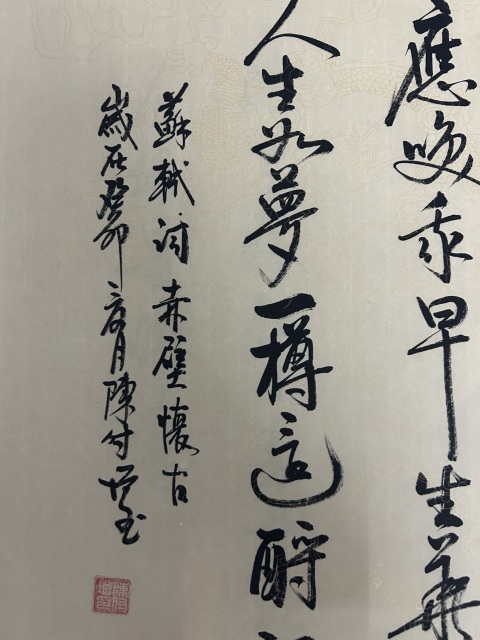 應咲我早生華
人生如夢一樽還酹
蘇軾詞赤壁懷古
歲在癸卯月陳付